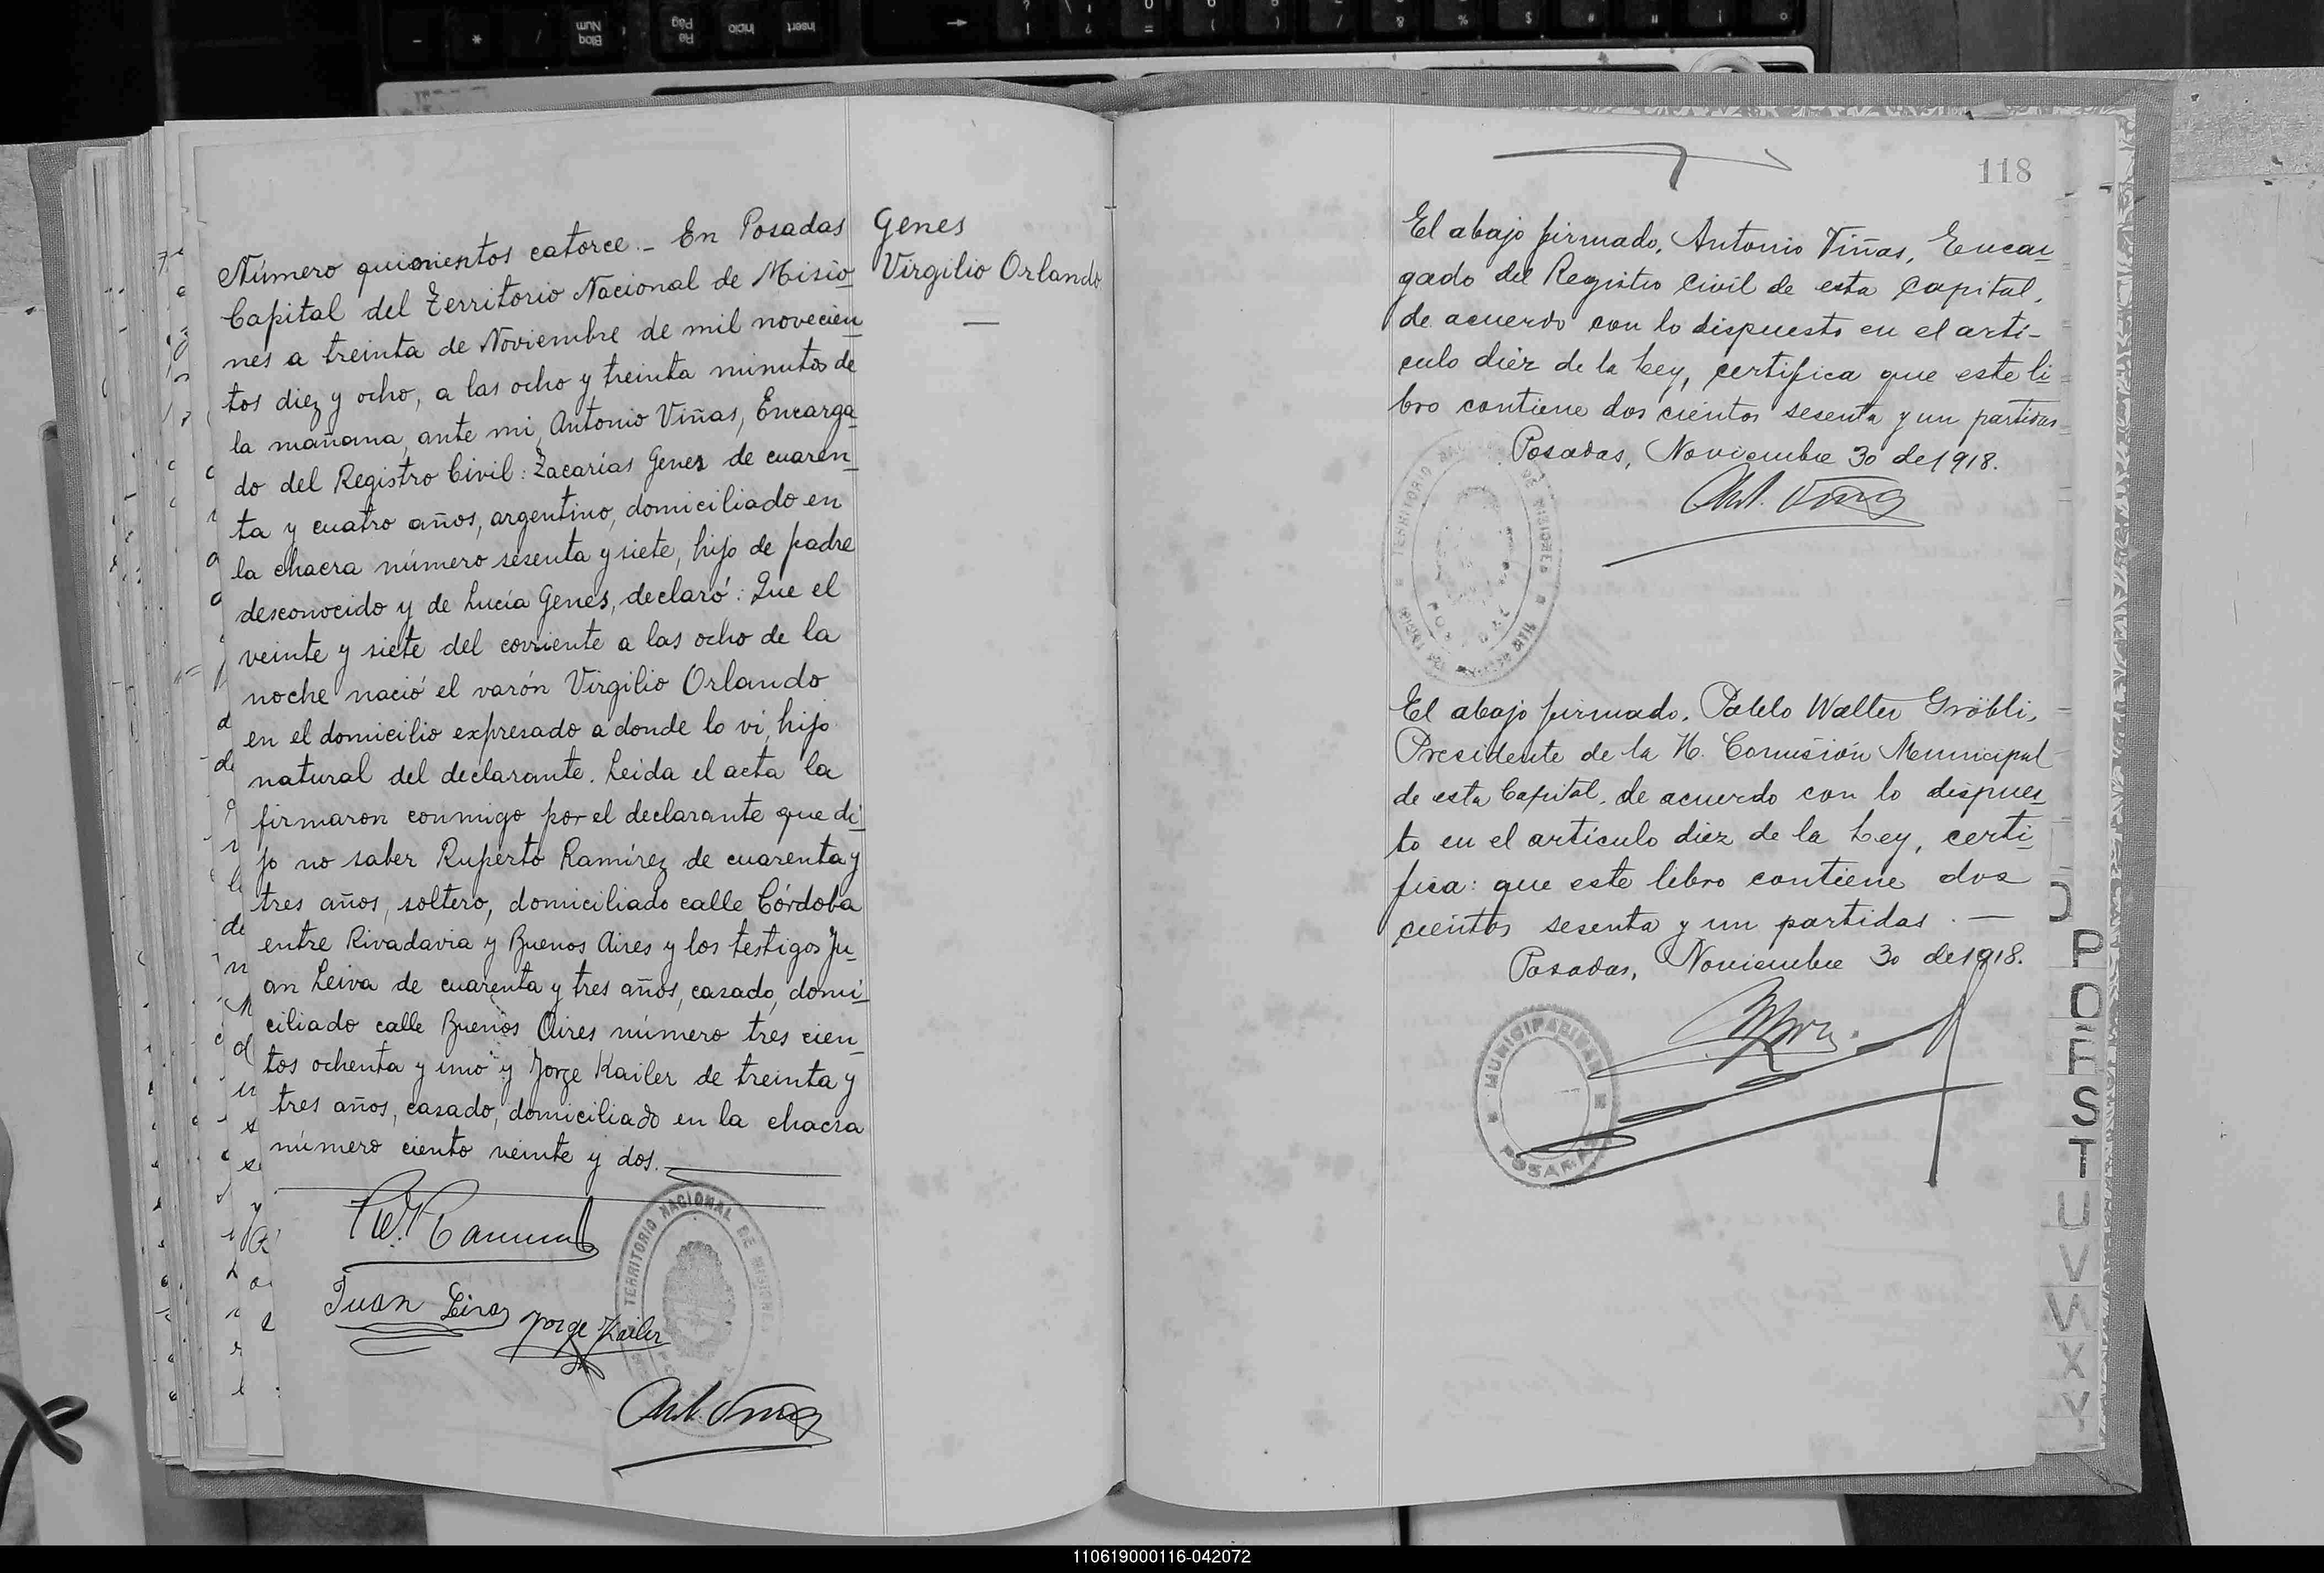 Número quinientos catorce.- En Posadas
Capital del Territorio Nacional de Misio
nes a treinta de Noviembre de mil novecien
tos diez y ocho, a las ocho y treinta minutos de
la mañana, ante mi, Antonio Viñas, Encarga
do del Registro Civil: Zacarías Genes de cuaren
ta y cuatro años, argentino, domiciliado en
la chacra número sesenta y siete, hijo de padre
desconocido y de Lucía Genes, declaró: Que el
veinte y siete del corriente a las ocho de la
noche nació el varón Virgilio Orlando
en el domicilio expresado a donde lo vi, hijo
natural del declarante. Leida el acta la
firmaron conmigo por el declarante que di
jo no saber Ruperto Ramírez de cuarenta y
tres años, soltero, domiciliado calle Córdoba
entre Rivadavia y Buenos Aires y los testigos Ju
an Leiva de cuarenta y tres años, casado, domi
ciliado calle Buenos Aires número tres cien
tos ochenta y uno y Jorge Kailer de treinta y
tres años, casado, domiciliado en la chacra
número ciento veinte y dos.
Juan Leiva
Jorge Kailer
TERRITORIO NACIONAL DE MISIONES
Ant. Viñas
Genes
Virgilio Orlando
118
El abajo firmado, Antonio Viñas, Encar
gado del Registro Civil de esta Capital,
de acuerdo con lo dispuesto en el artí-
culo diez de la Ley, certifica que este li
bro contiene dos cientos sesenta y un partidas
Posadas, Noviembre 30 de 1918.
Ant. Viñas
TERRITORIO NACIONAL DE MISIONES
El abajo firmado, Pablo Walter Gröbli,
Presidente de la H. Comisión Municipal
de esta Capital, de acuerdo con lo dispues
to en el artículo diez de la Ley, certi
fica: que este libro contiene dos
cientos sesenta y un partidas.
Posadas, Noviembre 30 de 1918.
MUNICIPALIDAD
POSADAS
P
Q
R
S
T
U
V
W
X
Y
110619000116-042072